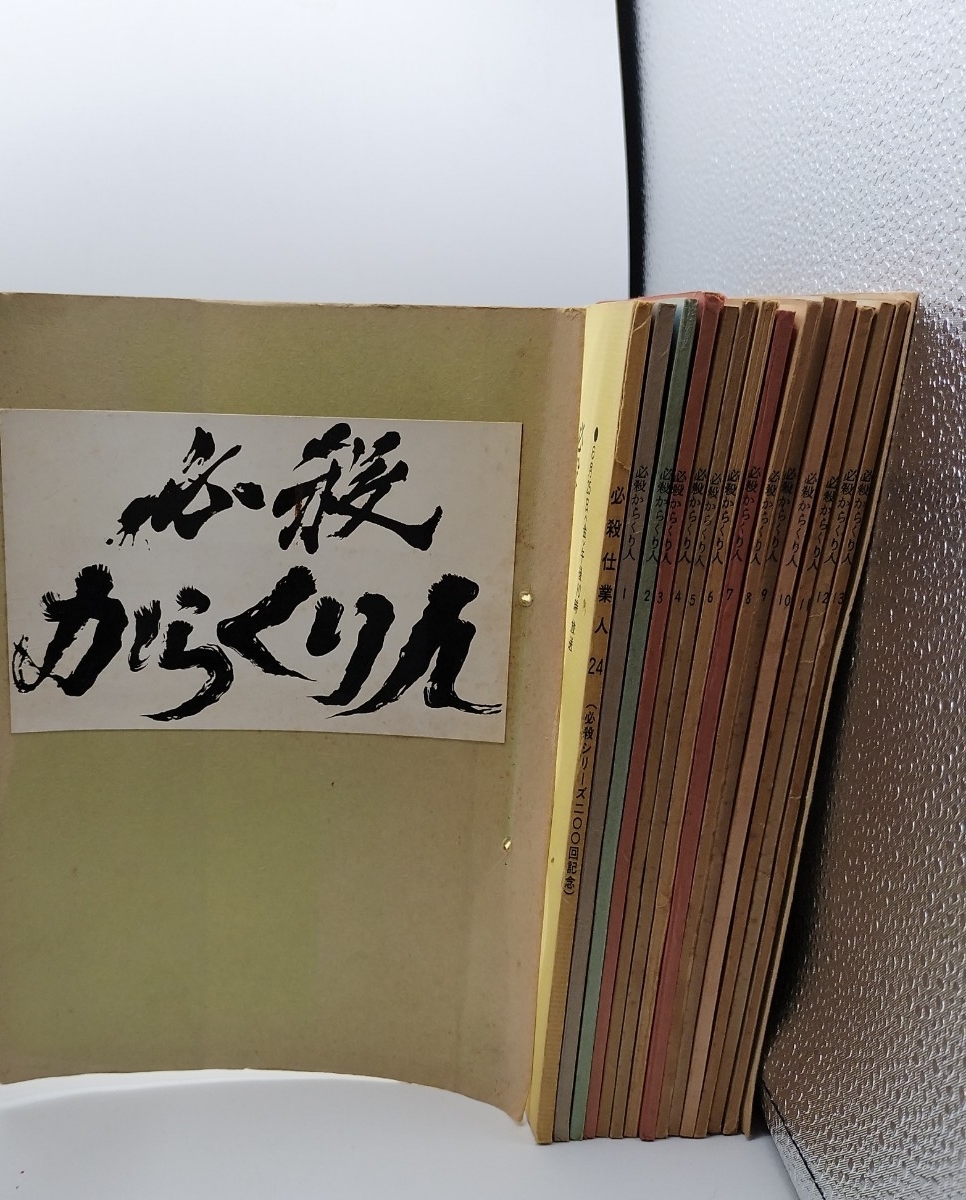 必殺
からくり人
必殺仕業人 24 (必殺シリーズ二〇〇回記念)
必殺からくり人 1
必殺からくり人 2
必殺からくり人 3
必殺からくり人 4
必殺からくり人 5
必殺からくり人 6
必殺からくり人 7
必殺からくり人 8
必殺からくり人 9
必殺からくり人 10
必殺からくり人 11
必殺からくり人 12
必殺からくり人 13